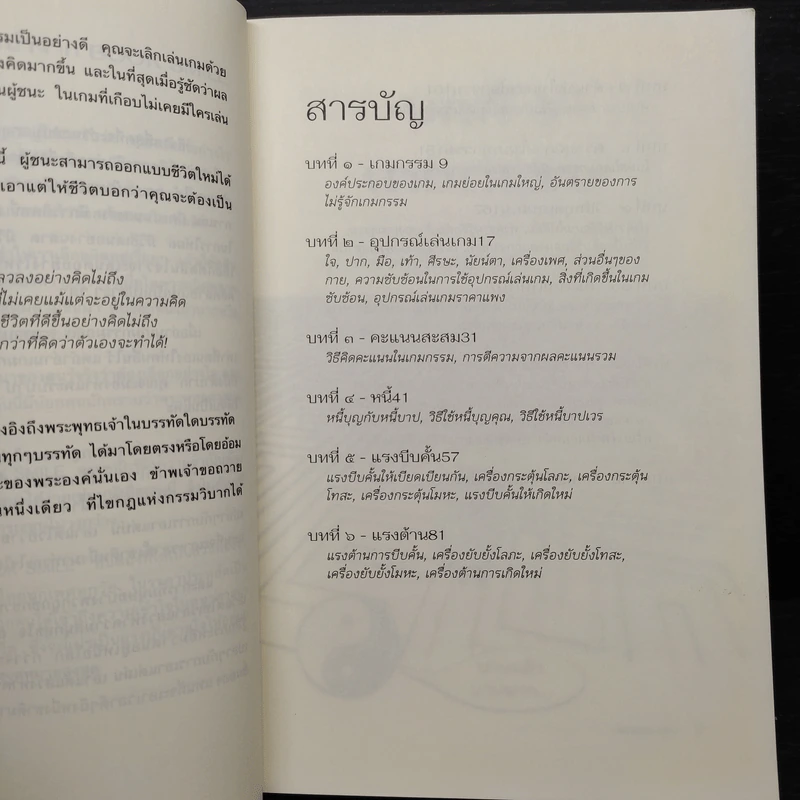 รมเป็นอย่างดี คุณจะเลิกเล่นเกมด้วย
งคิดมากขึ้น และในที่สุดเมื่อรู้ชัดว่าผล
นผู้ชนะ ในเกมที่เกือบไม่เคยมีใครเล่น
นี้ ผู้ชนะสามารถออกแบบชีวิตใหม่ได้
เอาแต่ให้ชีวิตบอกว่าคุณจะต้องเป็น
ลวลงอย่างคิดไม่ถึง
ที่ไม่เคยแม้แต่จะอยู่ในความคิด
ชีวิตที่ดีขึ้นอย่างคิดไม่ถึง
กว่าที่คิดว่าตัวเองจะทำได้!
งอิงถึงพระพุทธเจ้าในบรรทัดใดบรรทัด
นทุกๆบรรทัด ได้มาโดยตรงหรือโดยอ้อม
ะของพระองค์นั่นเอง ข้าพเจ้าขอถวาย
หนึ่งเดียว ที่ไขกฎแห่งกรรมวิบากได้
สารบัญ
บทที่ ๑ - เกมกรรม 9
องค์ประกอบของเกม, เกมย่อยในเกมใหญ่, อันตรายของการ
ไม่รู้จักเกมกรรม
บทที่ ๒ - อุปกรณ์เล่นเกม17
ใจ, ปาก, มือ, เท้า, ศีรษะ, นัยน์ตา, เครื่องเพศ, ส่วนอื่นๆของ
กาย, ความซับซ้อนในการใช้อุปกรณ์เล่นเกม, สิ่งที่เกิดขึ้นในเกม
ซับซ้อน, อุปกรณ์เล่นเกมราคาแพง
บทที่ ๓ - คะแนนสะสม31
วิธีคิดคะแนนในเกมกรรม, การตีความจากผลคะแนนรวม
บทที่ ๔ - หนี้41
หนี้บุญกับหนี้บาป, วิธีใช้หนี้บุญคุณ, วิธีใช้หนี้บาปเวร
บทที่ ๕ - แรงบีบคั้น57
แรงบีบคั้นให้เบียดเบียนกัน, เครื่องกระตุ้นโลภะ, เครื่องกระตุ้น
โทสะ, เครื่องกระตุ้นโมหะ, แรงบีบคั้นให้เกิดใหม่
บทที่ ๖ - แรงต้าน81
แรงต้านการบีบคั้น, เครื่องยับยั้งโลภะ, เครื่องยับยั้งโทสะ,
เครื่องยับยั้งโมหะ, เครื่องต้านการเกิดใหม่